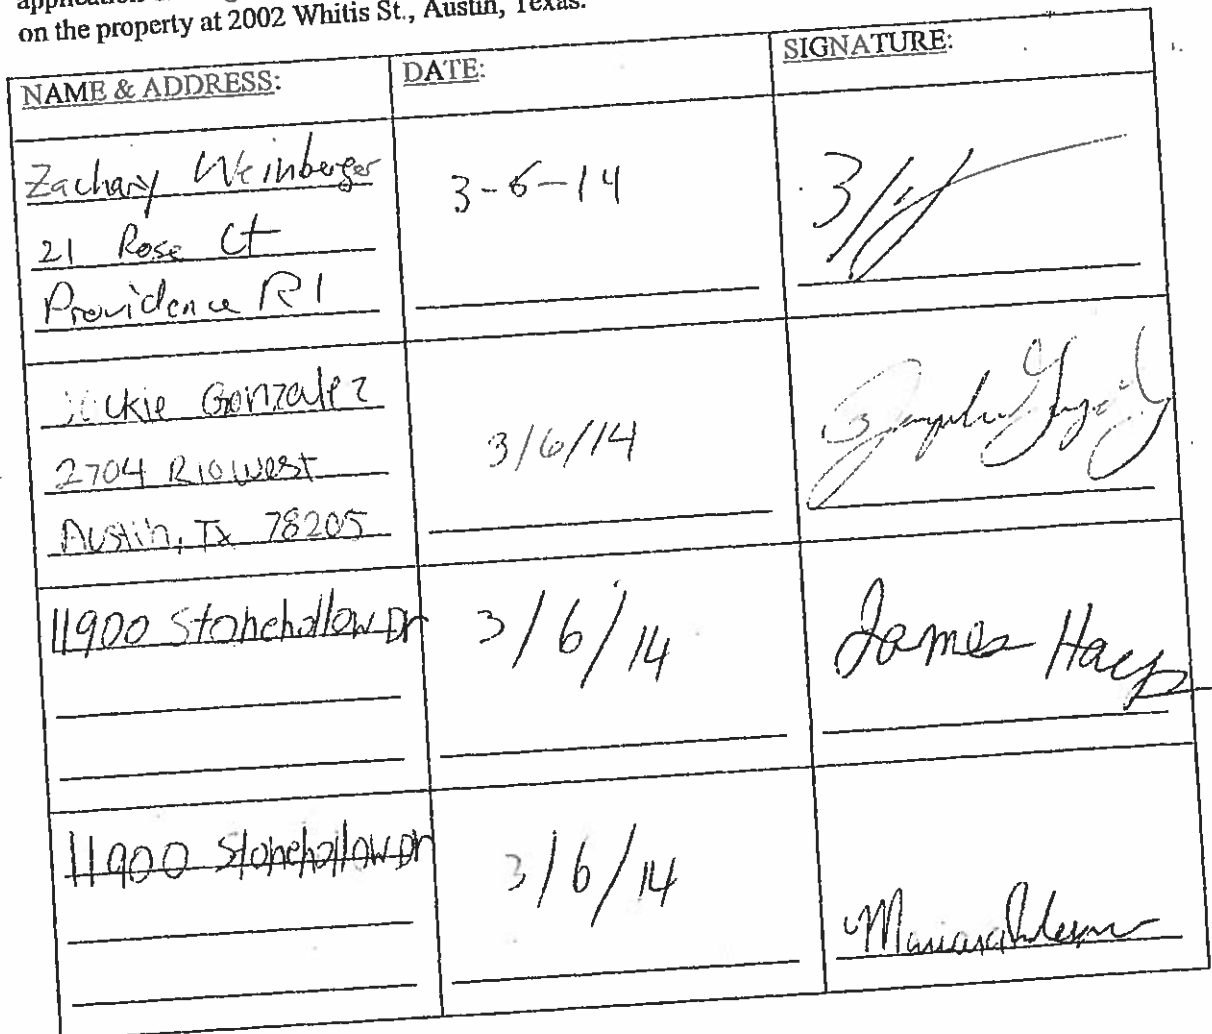 on the property at 2002 Whitis St., Austin, Texas.
NAME & ADDRESS: DATE: SIGNATURE:
Zachary Weinberger
21 Rose Ct
Providence RI
3-6-14
ckie Gonzalez
2704 Rio West
Austin, Tx 78205
3/6/14
11900 Stonehollow Dr
3/6/14
James Hays
11900 Stonehollow Dr
3/6/14
Mariana